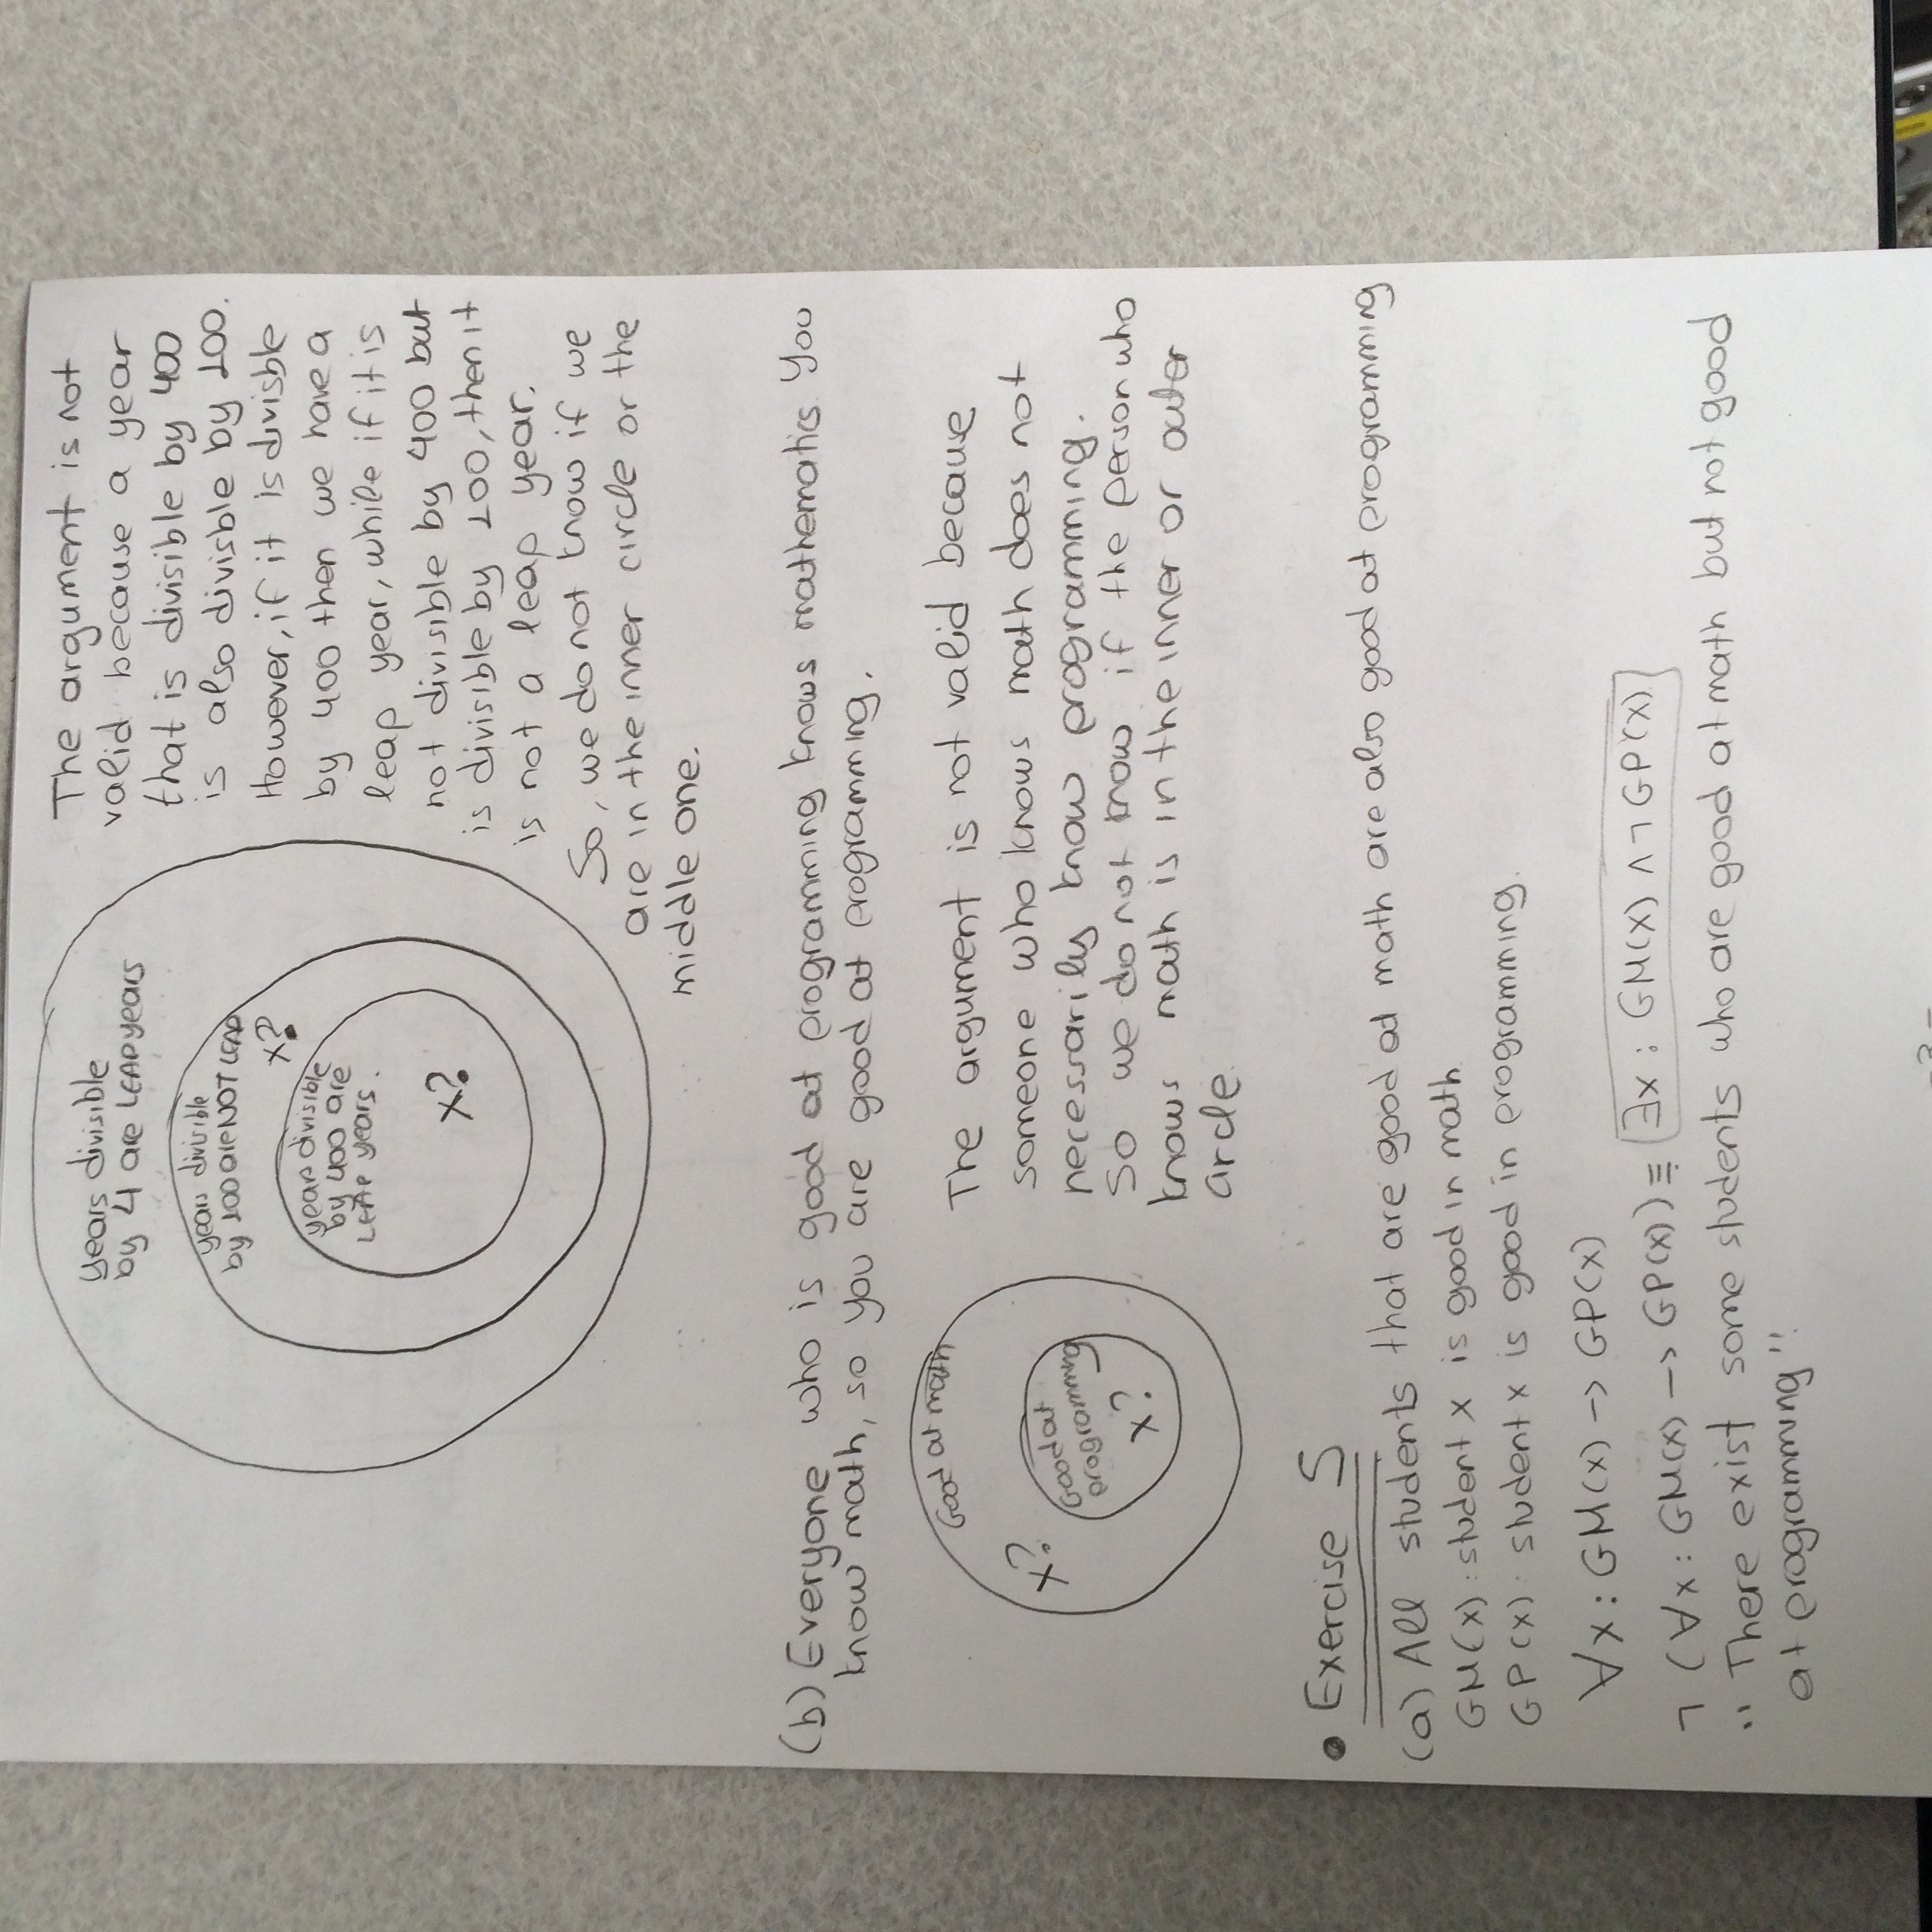 years divisible
by 4 are LEAP years
years divisible
by 100 are NOT LEAP
x?
years divisible
by 400 are
LEAP years.
x?
The argument is not
valid because a year
that is divisible by 400
is also divisble by 100.
However, if it is divisble
by 400 then we have a
leap year, while if it is
not divisible by 400 but
is divisible by 100, then it
is not a leap year.
So, we do not know if we
are in the inner circle or the
middle one.
(b) Everyone who is good at programming knows mathematics. You
know math, so you are good at programming.
Good at math
x?
Good at
programming
x?
The argument is not valid because
someone who knows math does not
necessarily know programming.
So we do not know if the person who
knows math is in the inner or outer
circle.
• Exercise 5
(a) All students that are good at math are also good at programming
GM(x): student x is good in math.
GP(x): student x is good in programming.
∀x: GM(x) -> GP(x)
¬ (∀x: GM(x) -> GP(x)) ≡ ∃x : GM(x) ∧ ¬ GP(x)
"There exist some students who are good at math but not good
at programming"
- 3 -